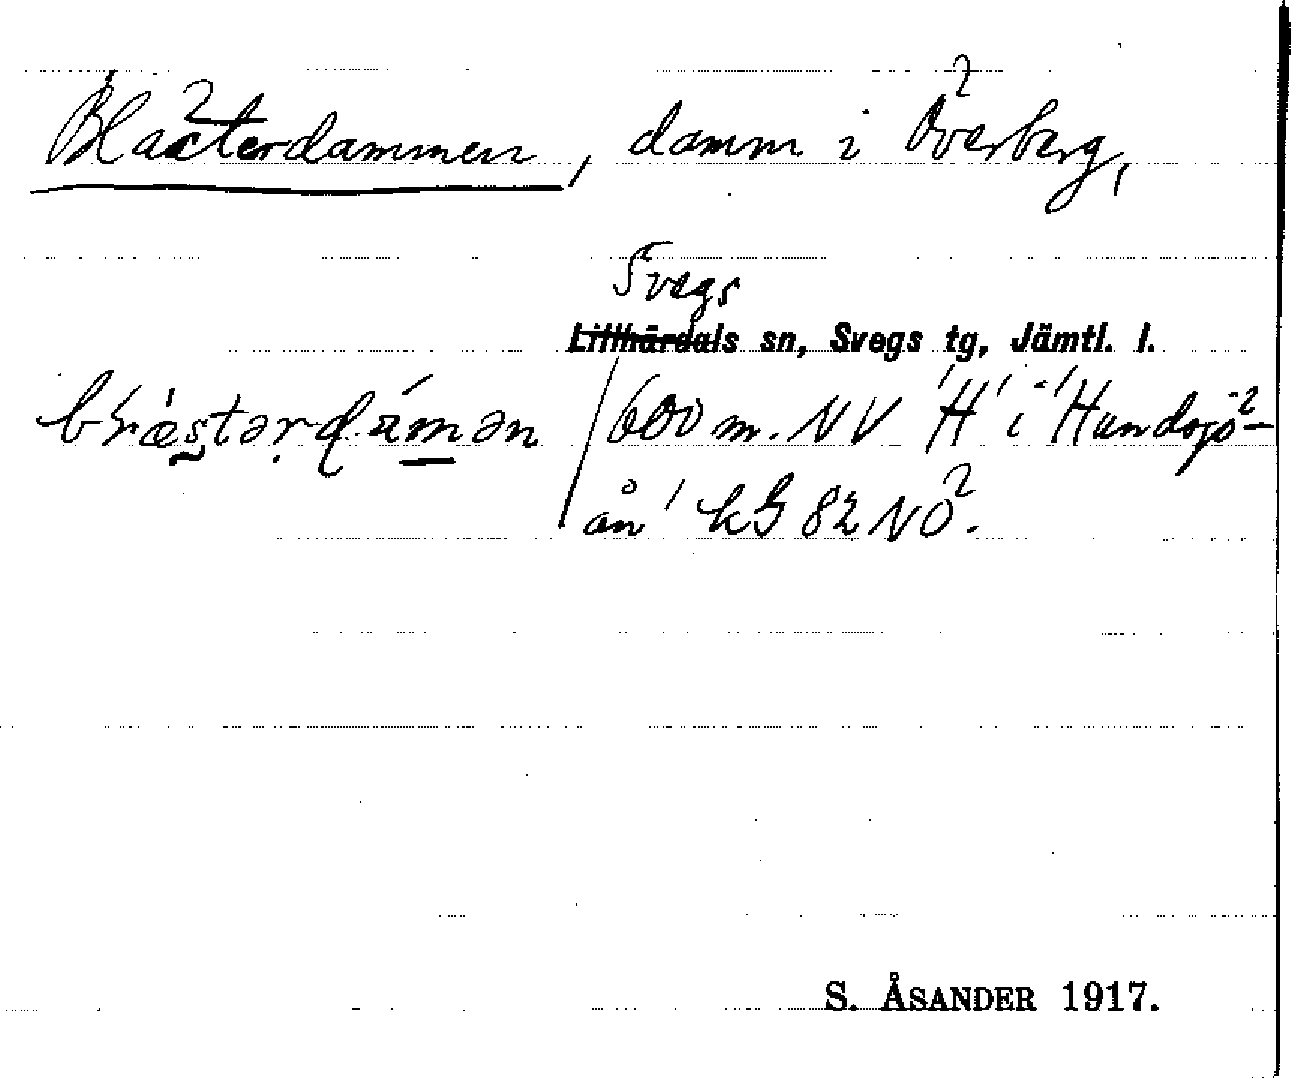 Blästerdammen, damm i Överberg,
Svegs
Lillhärdals sn, Svegs tg, Jämtl. l.
600 m. NV 'H' i 'Hundsjö-
ån' kG 82 NO.
S. ÅSANDER 1917.